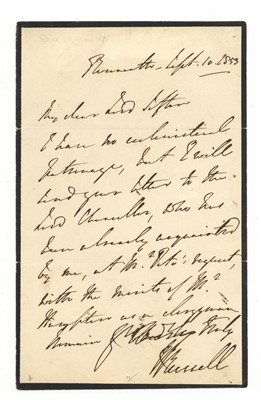 Sept. 10. 1853
My dear Lord Sefton
I have no ecclesiastical
patronage, but I will
send your letter to the
Lord Chancellor, who has
been already acquainted
by me, at Mr. request,
with the merits of Mr.
as a clergyman
Remain Yr Lordship truly
J Russell